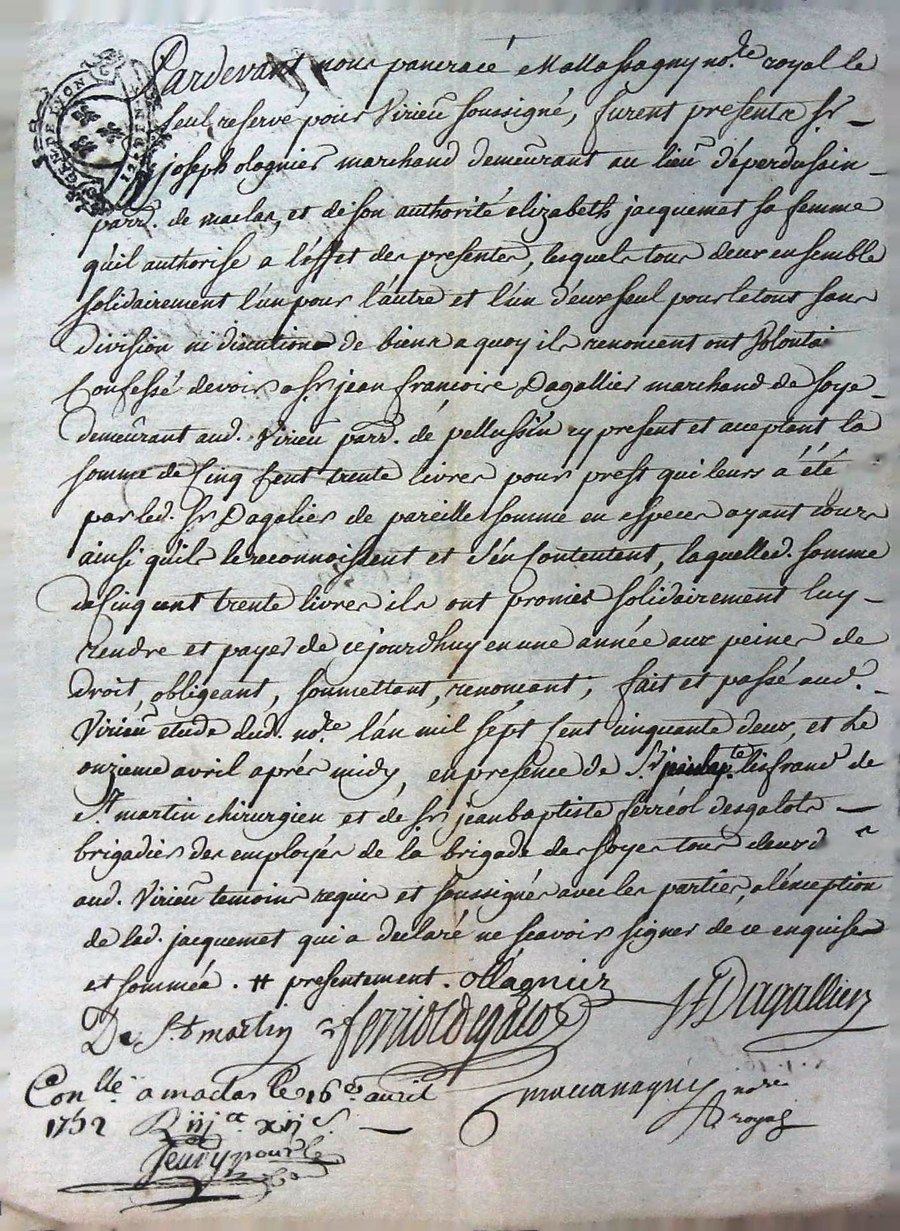 DE LYON
Pardevant nous pancracé Mallassagny no.re royal le
seul reservé pour Virieu soussigné, furent presents sr
joseph olagnier marchand demeurant au lieu d'éperdussin
parr. de maclas, et de son authorité elizabeth jacquemet sa femme
qu'il authorise a l'effet des presentes, lesquels tous deux ensemble
solidairement l'un pour l'autre et l'un d'eux seul pour le tout sans
division ni discution de biens a quoy ils renoncent ont Volontai
Confessé devoir a sr. jean françois Dagallier marchand de soye
demeurant aud. Virieu parr. de pellussin cy present et acceptant la
somme de Cinq Cent trente livres pour prest qui leurs a été
par led. sr Dagalier de pareille somme en especes ayant cours
ainsi qu'ils le reconnoissent et s'en Contentent, laquelle d. somme
de Cinq cent trente livres ils ont promis solidairement luy
rendre et payer de ce jourdhuy en une année aux peines de
droit, obligeant, soumettant, renoncant, fait et passé aud.
Virieu etude dud. no.re l'an mil sept Cent cinquante deux, et le
onzieme avril aprés midy, en presence de Sr lisfrand de
St martin chirurgien et de sr jean baptiste ferréol desgalots
brigadier des employés de la brigade de soyes tous deux d
aud. Virieu temoins requis et soussignés avec les parties, a l'éxception
de lad. jacquemet qui a declaré ne scavoir signer de ce enquise
et sommée. # presentement. ollagnier
De St martin ferriol degalos JF Dagallier
Con.llé a maclas le 16e avril
1752 R iij # xij s.
nore
royal